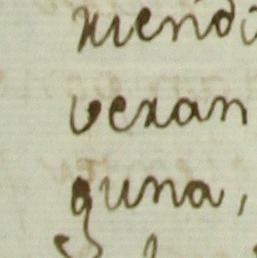 riendo
veran
guna,